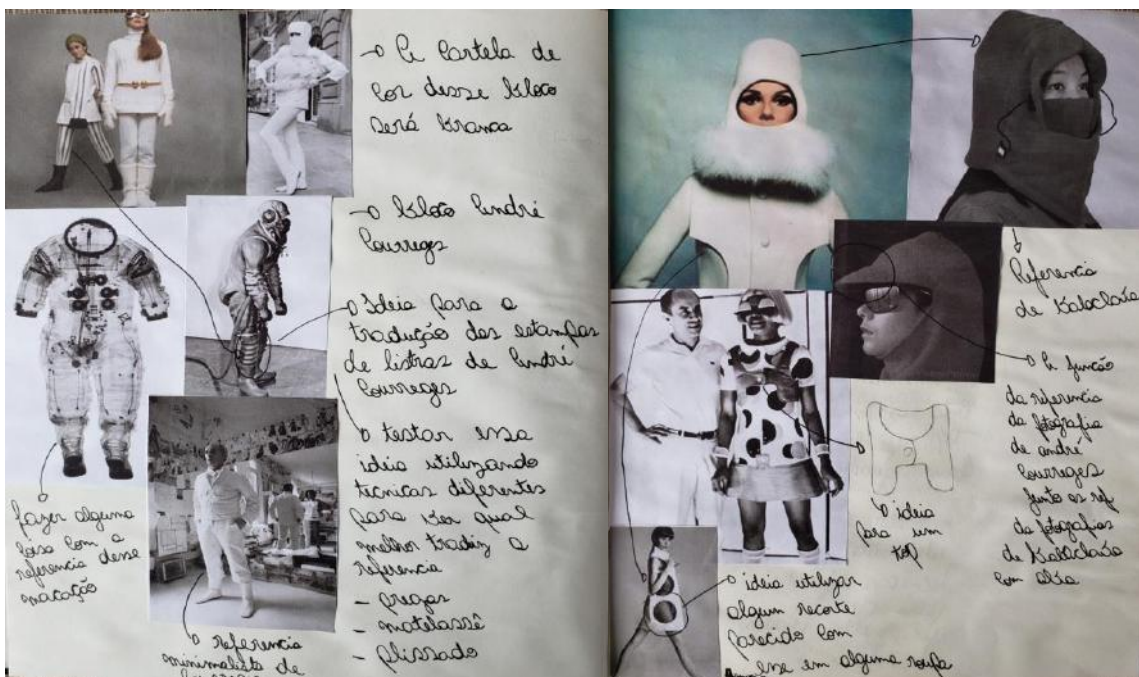 → A Cartela de
Cor desse bloco
será branca
→ bloco André
Courreges
→ Ideia para a
tradução das estampas
de listras de André
Courreges
→ testar essa
ideia utilizando
tecnicas diferentes
para ver qual
melhor traduz a
referencia
- pregas
- matelassê
- plissado
fazer alguma
coisa com a
referencia desse
macacão
→ referencia
minimalista de
Referencia
de balaclava
→ A junção
da referencia
da fotografia
de andré
Courreges
junto as ref.
da fotografias
de balaclava
com aba
→ ideia
para um
top
→ ideia utilizar
algum recorte
parecido com
esse em alguma roupa